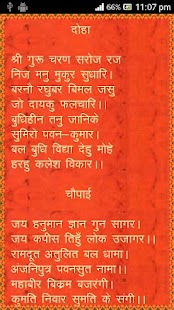 84%
11:07 pm
दोहा
श्री गुरू चरण सरोज रज
निज मनु मुकुर सुधारि।
बरनौं रघुबर बिमल जसु
जो दायकु फलचारि।।
बुधिहीन तनु जानिके
सुमिरो पवन–कुमार।
बल बुधि विद्या देहु मोहे
हरहु कलेश विकार।।
चौपाई
जय हनुमान ज्ञान गुन सागर।
जय कपीस तिहुँ लोक उजागर।।
रामदूत अतुलित बल धामा।
अंजनिपुत्र पवनसुत नामा।।
महाबीर बिक्रम बजरंगी।
कुमति निवार सुमति के संगी।।